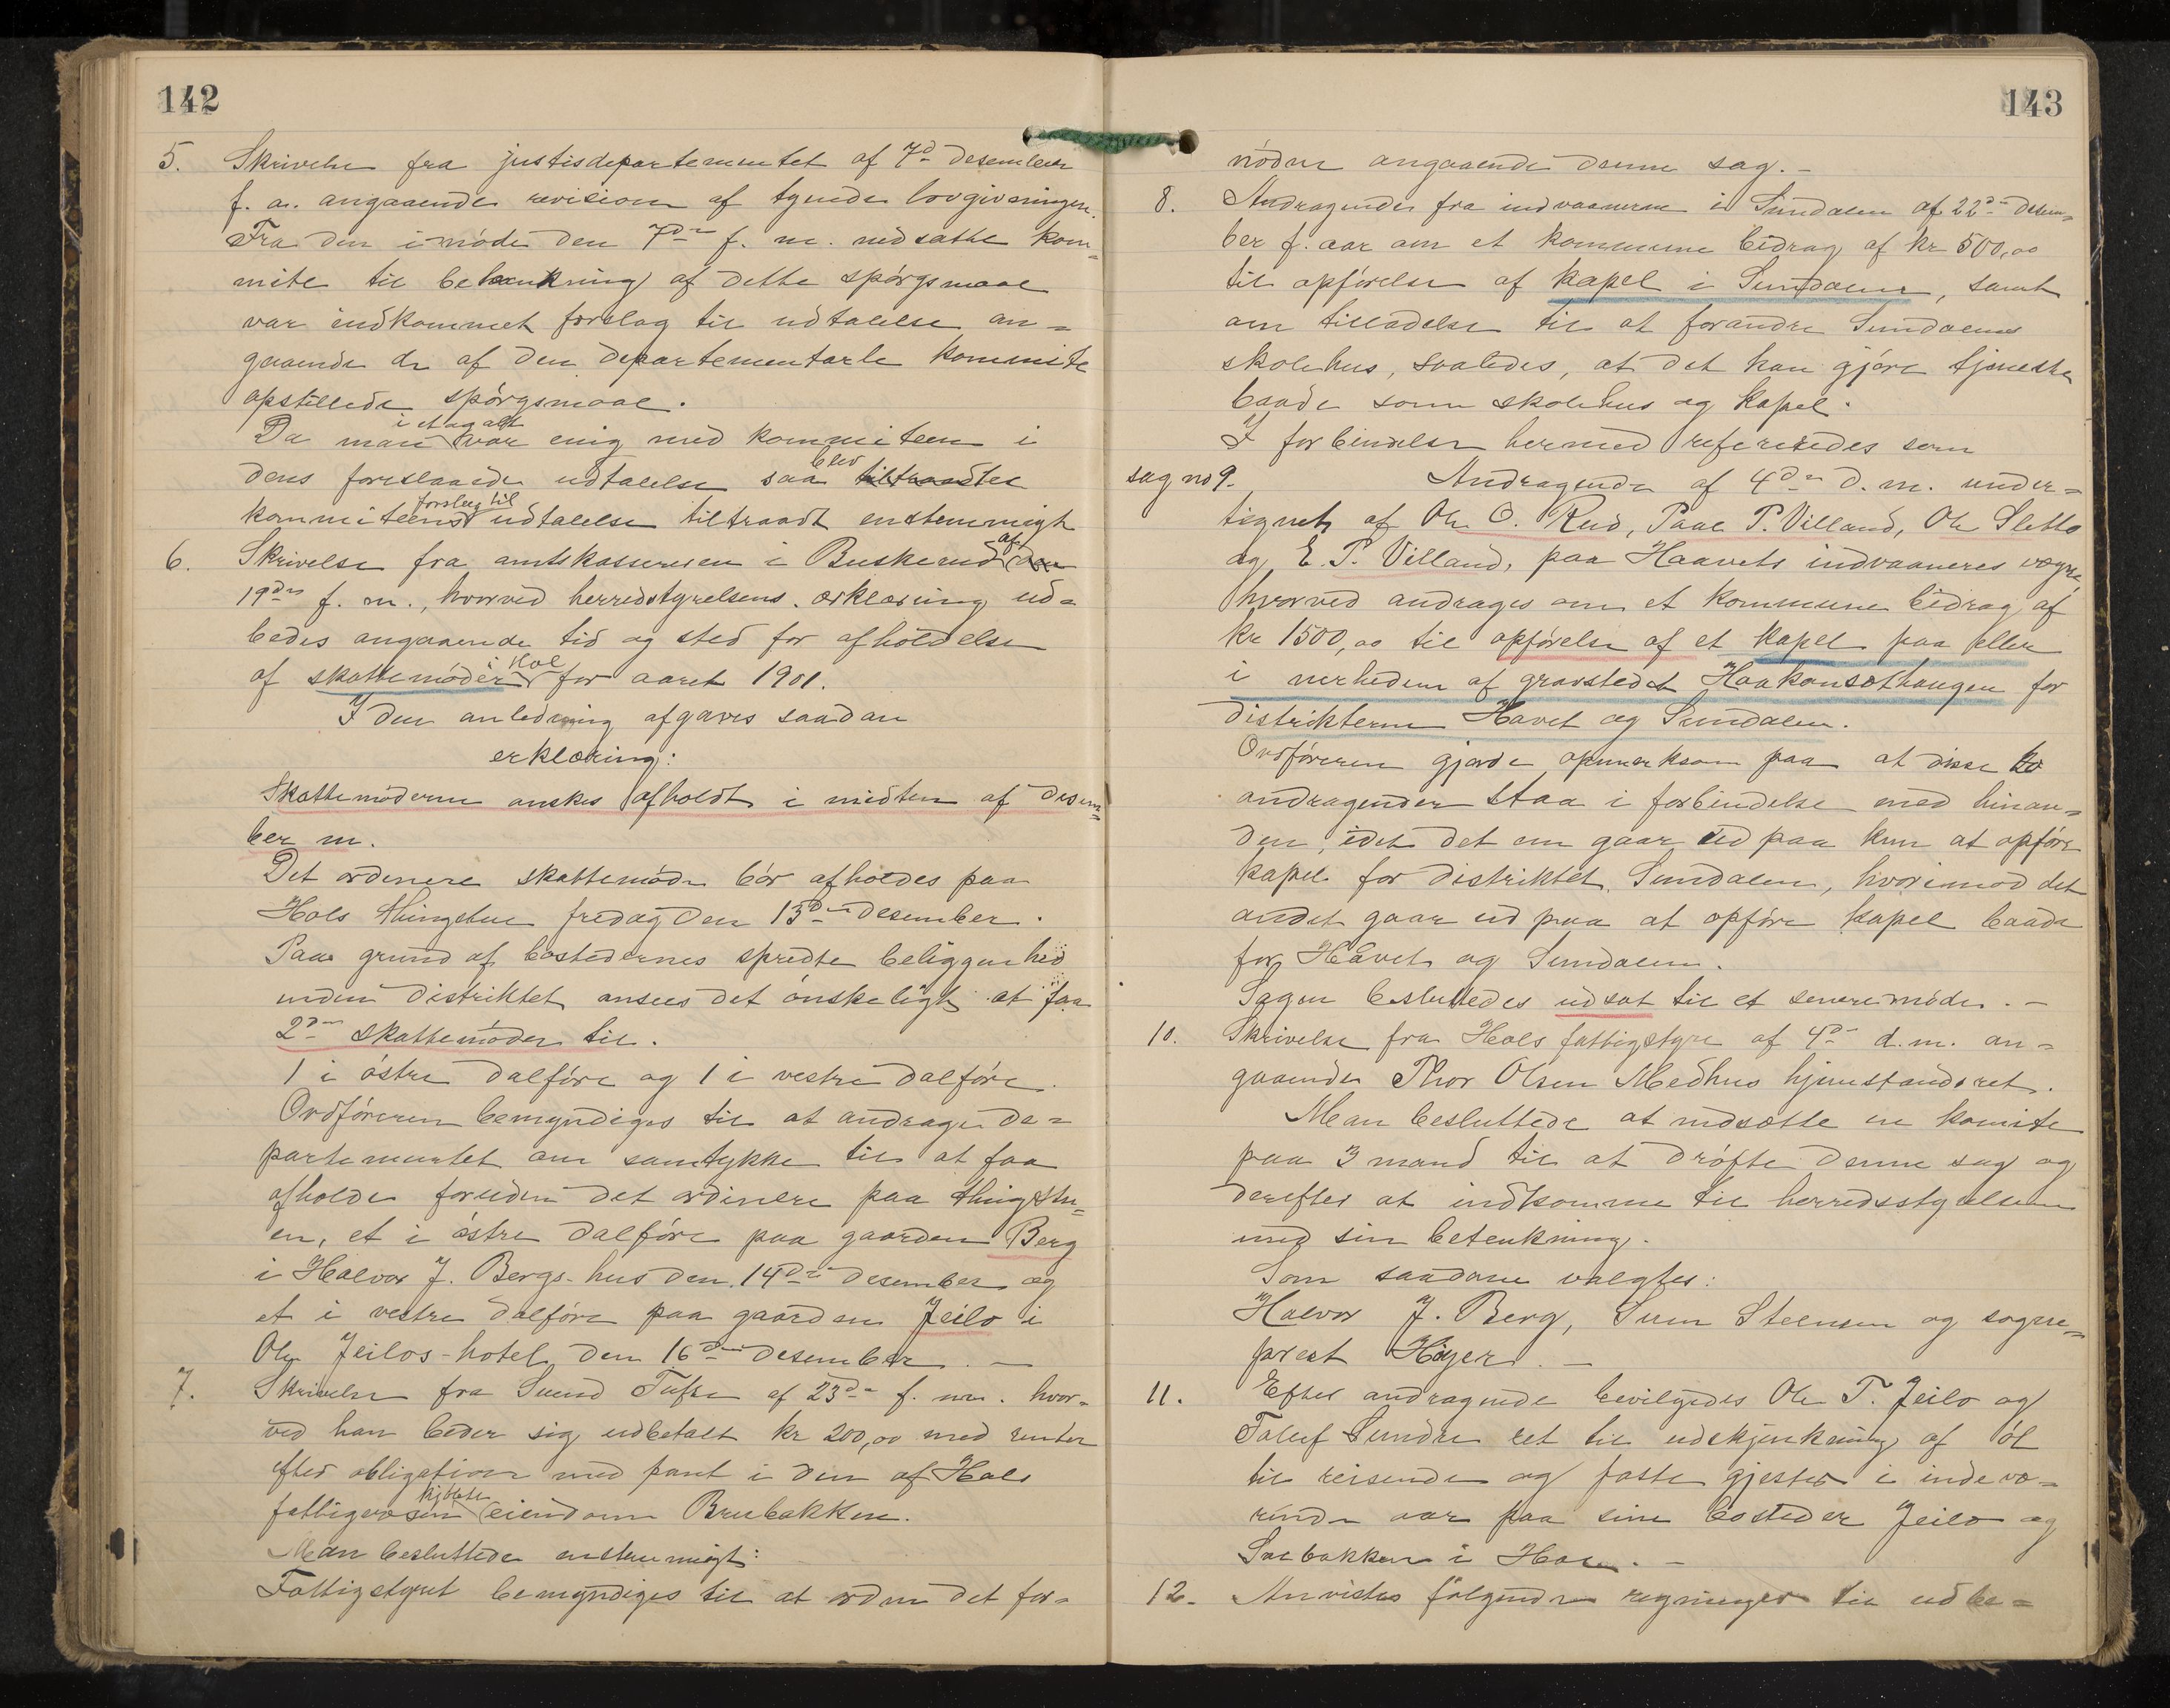 142
5. Skrivelse fra justisdepartementet af 7d desember
f. a. angaaende revision af tyende lovgivningen.
Fra den i møde den 7de f. m. nedsatte kom=
mite til behankning af dette spørgsmaal
var indkommet forslag til udtalelse an=
gaaende de af den departementarle kommite
opstillede spørgsmaal.
Da man i et og alt var enig med kommiteen i
dens foreslaaede udtalelse saa blev tiltraadtes
kommiteens forslag til udtalelse tiltraadt enstemmigt
6. Skrivelse fra amtskassereren i Buskerud af den
19de f. m., hvorved herredstyrelsens erklæring ud=
bedes angaaende tid og sted for afholdelse
af skattemøder i Hol for aaret 1901.
I den anledning afgaves saadan
erklæring:
Skattemøderne ønskes afholdt i midten af desem=
ber m.
Det ordenere skattemøde bør afholdes paa
Hols thingstue fredag den 13de desember.
Paa grund af bostedernes spredte beliggenhed
inden distriktet ansees det ønskeligt at faa
2de skattemøder til.
1 i østre dalføre og 1 i vestre dalføre.
Ordføreren bemyndiges til at andrage de=
partementet om samtykke til at faa
afholde foruden det ordinere paa thingstu=
en, et i østre dalføre paa gaarden Berg
i Halvor J. Bergs hus den 14de desember og
et i vestre dalføre paa gaarden Jeilo i
Ole Jeilos hotel den 16de desember. —
7. Skrivelse fra Svend Tufte af 23de f. m. hvor=
ved han beder sig udbetalt kr 200,00 med renter
efter obligation med pant i den af Hols
fattigvæsen kjøbte eiendom Brubakken.
Man besluttede enstemmigt:
Fattigstyret bemyndiges til at ordne det for=
143
nødne angaaende denne sag. —
8. Andragende fra indvaanerne i Sundalen af 22de desem=
ber f. aar om et kommune bidrag af kr 500,00
til opførelse af kapel i Sundalen, samt
om tilladelse til at forandre Sundalens
skolehus, saaledes, at det kan gjøre tjeneste
baade som skolehus og kapel.
I forbindelse hermed refereredes som
sag no 9. Andragende af 4de d. m. under=
tignet af Ole O. Rud, Paal T. Villand, Ole Sletto
og E. P. Villand, paa Haavets indvaaneres vægne
hvorved andrages om et kommune bidrag af
kr 1500,00 til opførelse af et kapel paa eller
i nerheden af gravstedet Haakonsethaugen for
distrikterne Havet og Sundalen.
Ordføreren gjorde opmerksom paa at disse to
andragender staa i forbindelse med hinan=
den, idet det en gaar ud paa kun at opføre
kapel for distriktet Sundalen, hvorimod det
andet gaar ud paa at opføre kapel baade
for Håvet og Sundalen.
Sagen besluttedes udsat til et senere møde. —
10. Skrivelse fra Hols fattigstyre af 4de d. m. an=
gaaende Thor Olsen Medhus hjemstandsret.
Man besluttede at nedsætte en komite
paa 3 mand til at drøfte denne sag og
derefter at indkomme til herredsstyrelsen
med sin betenkning.
Som saadane valgtes:
Halvor J. Berg, Svein Steensen og sogne=
prest Høyer. —
11. Efter andragende bevilgedes Ole T. Jeilo og
Tollef Sundre ret til udskjenkning af øl
til reisende og faste gjester i indevæ=
rende aar paa sine bosteder Jeilo og
Solbakken i Hol. —
12. Anvistes følgende regninger til udbe=